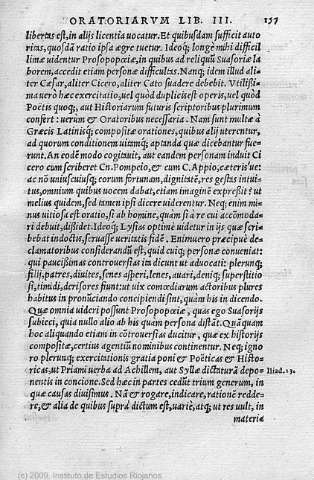 ORATORIARVM LIB. III. 157
libertas est, in alijs licentia uocatur. Et quibusdam sufficit auto
ritas, quosdã ratio ipsa ægre tuetur. Ideoq; longè mihi difficil
limæ uidentur Prosopopœiæ, in quibus ad reliquũ Suasoriæ la
borem, accedit etiam personæ difficultas. Nanq; idem illud ali
ter Cæsar, aliter Cicero, aliter Cato suadere debebit. Vtilissi-
ma uerò hæc exercitatio, uel quòd duplicis est operis, uel quòd
Poëtis quoq;, aut Historiarum futuris scriptoribus plurimum
confert: uerùm & Oratoribus necessaria. Nam sunt multæ à
Græcis Latinisq́; compositæ orationes, quibus alij uterentur,
ad quorum conditionem uitamq́; aptanda quæ dicebantur fue-
runt. An eodẽ modo cogitauit, aut eandem personam induit Ci
cero cum scriberet Cn. Pompeio, & cum C. Appio, cæteris'ue:
ac nõ uniuscuiusq; eorum fortunam, dignitatẽ, res gestas intui
tus, omnium quibus uocem dabat, etiam imaginẽ expressit: ut
melius quidem, sed tamen ipsi dicere uiderentur. Neq; enim mi-
nus uitiosa est oratio, si ab homine, quàm si à re cui accõmoda-
ri debuit, dissidet. Ideoq́; Lysias optimè uidetur in ijs quæ scri
bebat indoctis, seruasse ueritatis fidẽ. Enimuero præcipuè de-
clamatoribus considerandũ est, quid cuiq; personæ conueniat:
qui paucissimas controuersias ita dicunt ut aduocati: plerunq;
filij, patres, diuites, senes asperi, lenes, auari, deniq; superstitio
si, timidi, derisores fiunt: ut uix comœdiarum actoribus plures
habitus in pronũciando concipiendi sint, quàm his in dicendo.
Quæ omnia uideri possunt Prosopopœiæ, quas ego Suasorijs
subieci, quia nullo alio ab his quàm persona distãt. Quãquam
hoc aliquando etiam in cõtrouersias ducitur, quæ ex historijs
compositæ, certius agentiũ nominibus continentur. Neq; igno
ro plerunq; exercitationis gratia poni & Poëticas & Histo-
ricas, ut Priami uerba ad Achillem, aut Syllæ dictaturã depo- Iliad. 13.
nentis in concione. Sed hæc in partes cedẽt trium generum, in
quæ causas diuisimus. Nã & rogare, indicare, rationẽ redde-
re, & alia de quibus suprà dictum est, uariè, atq; ut res tulit, in
materia
(c) 2009, Instituto de Estudios Riojanos